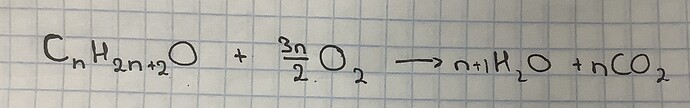 CₙH₂ₙ₊₂O + 3n/2 O₂ → n+1H₂O + nCO₂